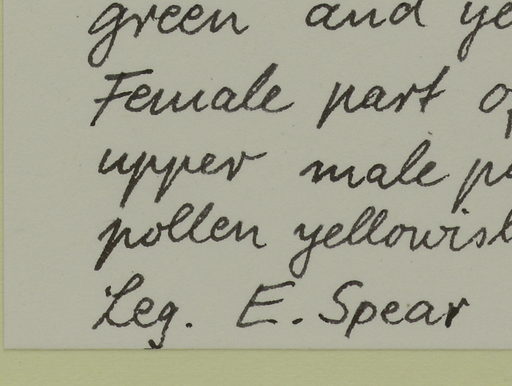 green and ye
Female part of
upper male pa
pollen yellowish
Leg. E. Spear